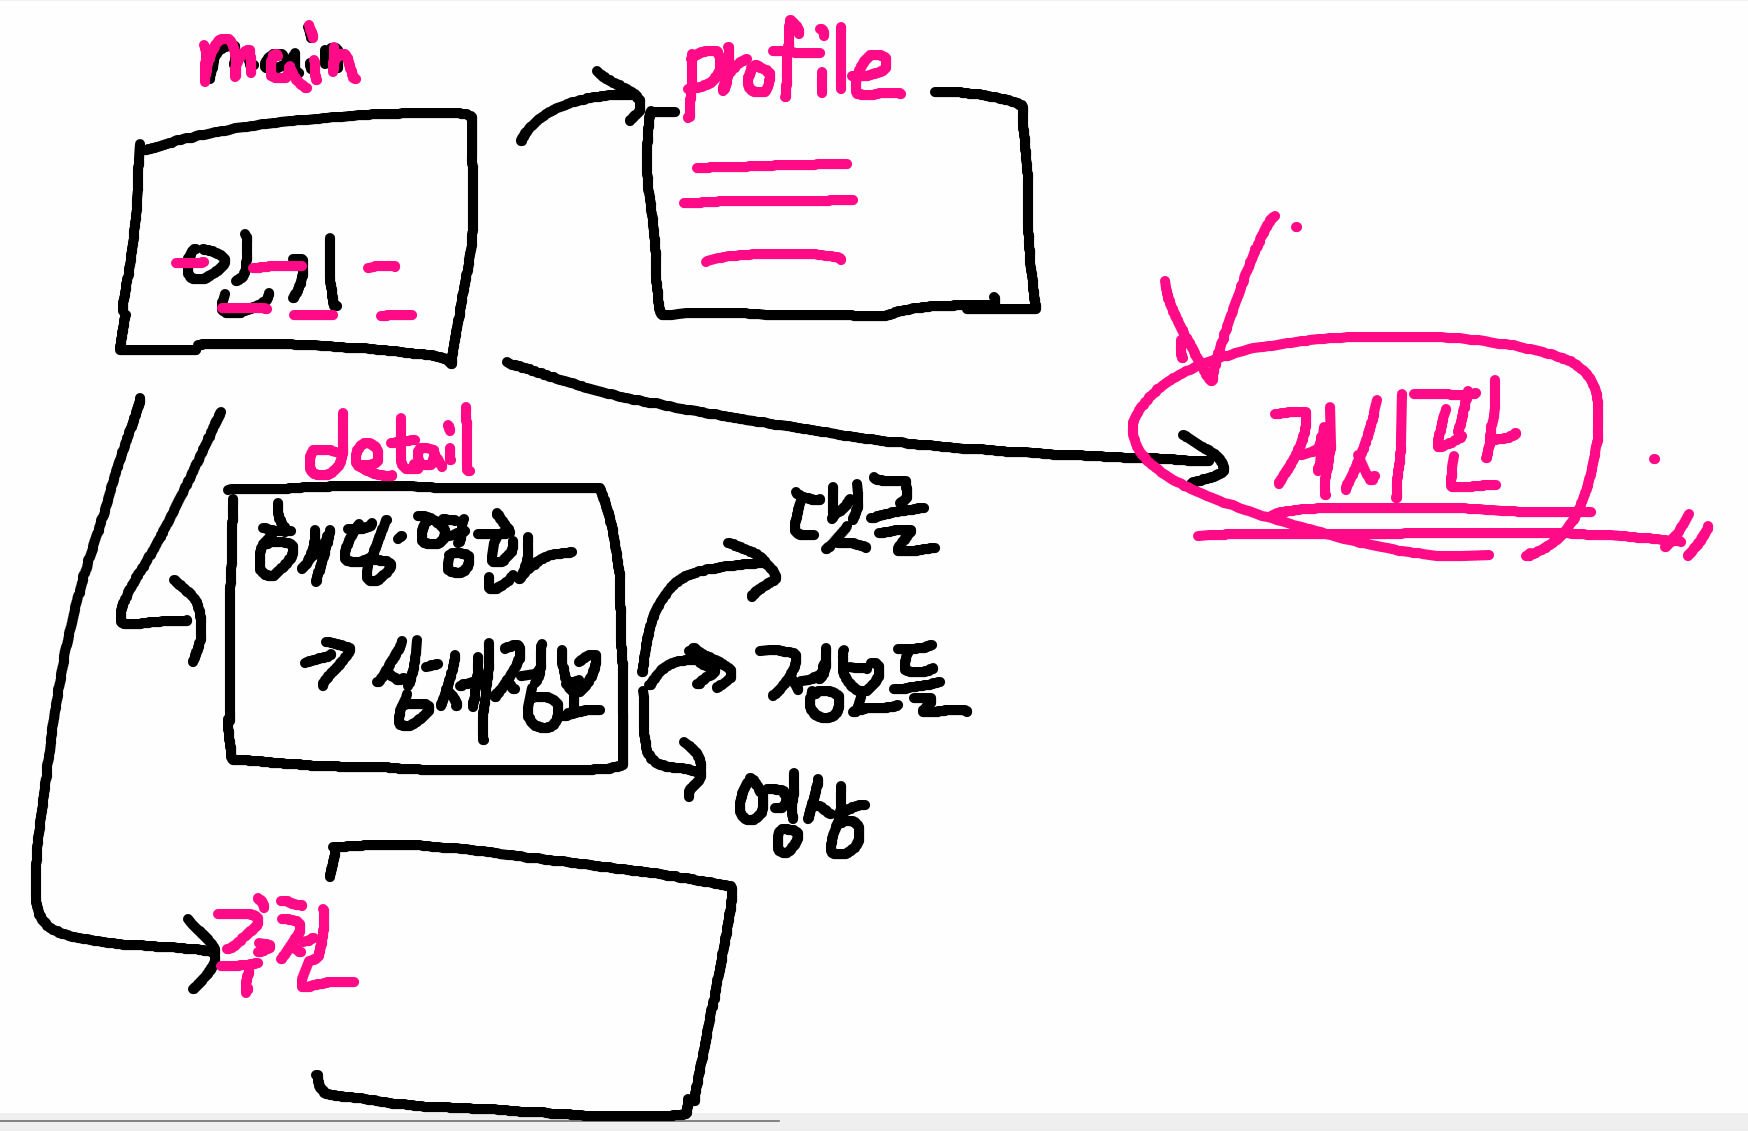 main
profile
인기
게시판
detail
해당 영화
→ 상세정보
댓글
정보들
영상
추천